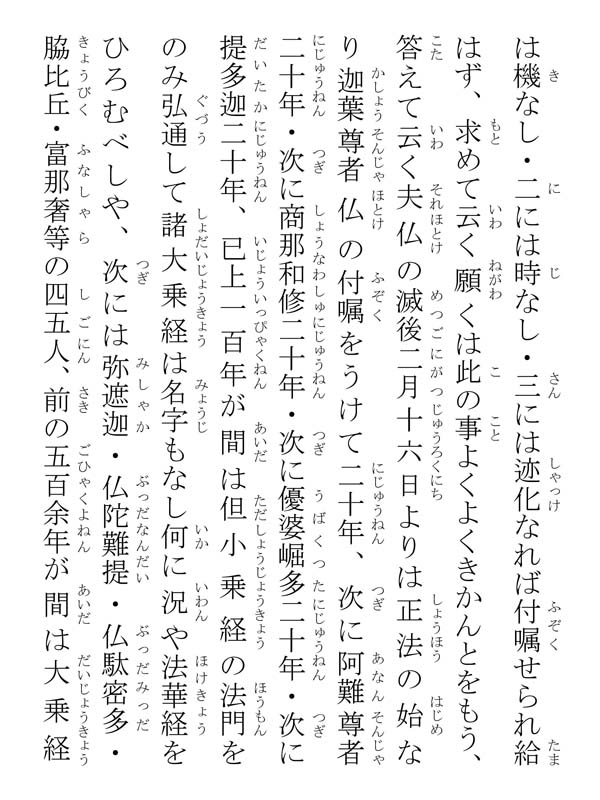 は機なし・二には時なし・三には迹化なれば付嘱せられ給
はず、求めて云く願くは此の事よくよくきかんとをもう、
答えて云く夫仏の滅後二月十六日よりは正法の始な
り迦葉尊者仏の付嘱をうけて二十年、次に阿難尊者
二十年・次に商那和修二十年・次に優婆崛多二十年・次に
提多迦二十年、已上一百年が間は但小乗経の法門を
のみ弘通して諸大乗経は名字もなし何に況や法華経を
ひろむべしや、次には弥遮迦・仏陀難提・仏駄密多・
脇比丘・富那奢等の四五人、前の五百余年が間は大乗経